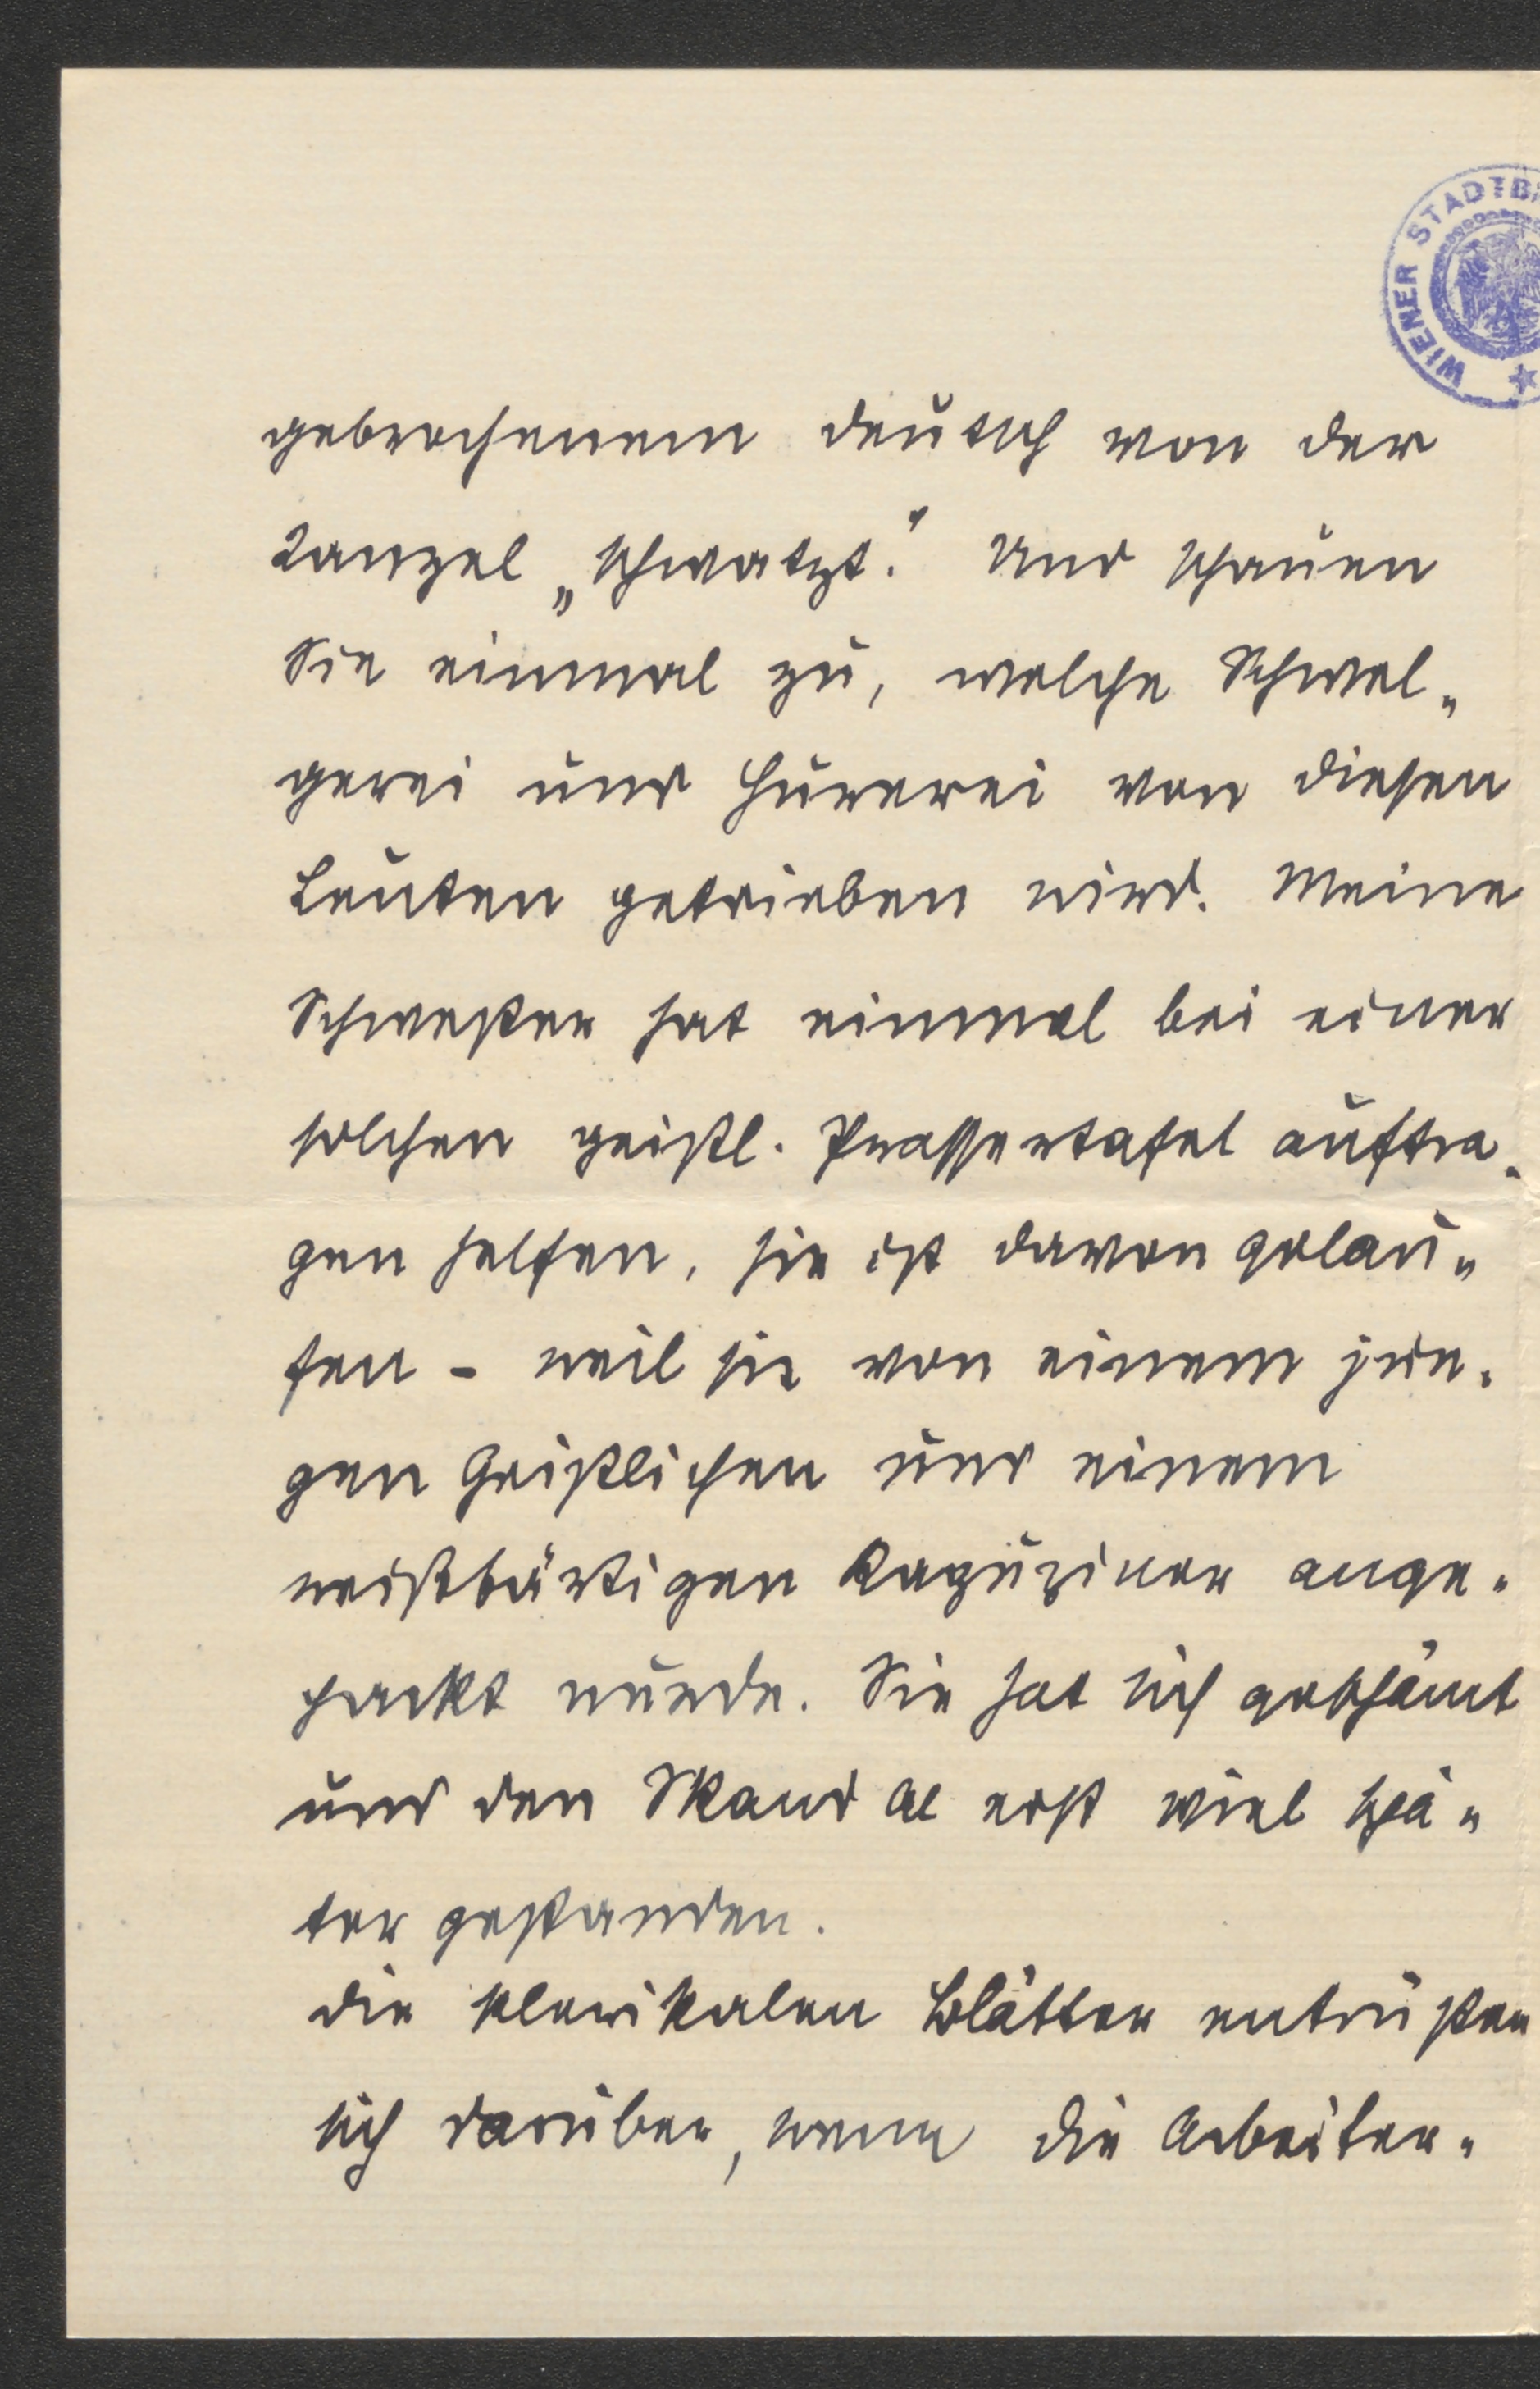 WIENER STADTBI
gebrochenem deutsch von der
Kanzel „schwatzt." Und schauen
Sie einmal zu, welche Schwel-
gerei und Hurerei von diesen
Leuten getrieben wird. Meine
Schwester hat einmal bei einer
solchen geistl. Prassertafel auftra-
gen helfen, sie ist davon gelau-
fen - weil sie von einem jun-
gen Geistlichen und einem
weißbärtigen Kapuziner ange-
packt wurde. Sie hat sich geschämt
und den Skandal erst viel spä-
ter gestanden.
die klerikalen Blätter entrüsten
sich darüber, wenn die Arbeiter-